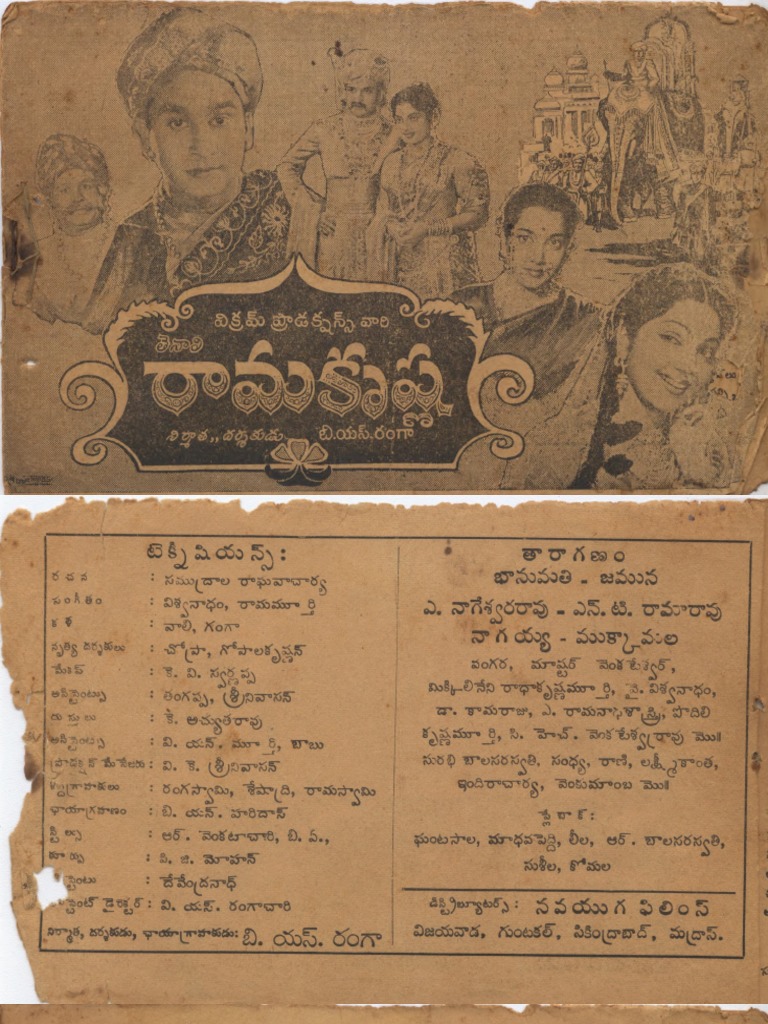 విక్రమ్ ప్రొడక్షన్స్ వారి
తెనాలి
రామకృష్ణ
నిర్మాత,, దర్శకుడు బి.యస్.రంగా
టెక్నీషియన్స్ :
రచన : సముద్రాల రాఘవాచార్య
సంగీతం : విశ్వనాధం, రామమూర్తి
కళ : వాలి, గంగా
నృత్య దర్శకులు : చోప్రా, గోపాలకృష్ణన్
మేకప్ : కె. వి. స్వర్ణప్ప
అసిస్టెంట్సు : తంగప్ప, శ్రీనివాసన్
దుస్తులు : కే. అచ్యుతరావు
అసిస్టెంట్సు : వి. యన్. మూర్తి, బాబు
: వి. కె. శ్రీనివాసన్
: రంగస్వామి, శేషాద్రి, రామస్వామి
ఛాయాగ్రహణం : బి. యన్. హరిదాస్
స్టిల్సు : ఆర్. వెంకటాచారి, బి. ఏ.,
కూర్పు : పి. జి. మోహన్
: దేవేంద్రనాధ్
డైరెక్టర్ : వి. యస్. రంగాచారి
నిర్మాత, దర్శకుడు, ఛాయాగ్రాహకుడు: బి. యస్. రంగా
తారాగణం
భానుమతి - జమున
ఎ. నాగేశ్వరరావు - ఎన్.టి. రామారావు
నాగయ్య - ముక్కామల
వంగర, మాష్టర్ వెంకటేశ్వర్,
మిక్కిలినేని రాధాకృష్ణమూర్తి, వై. విశ్వనాధం,
డా. కామరాజు, ఎ. రామనాథశాస్త్రి, పొదిలి
కృష్ణమూర్తి, సి. హెచ్. వెంకటేశ్వరరావు మొ॥
సురభి బాలసరస్వతి, సంధ్య, రాణి, లక్ష్మీకాంత,
ఇందిరాచార్య, వెంకుమాంబ మొ॥
ప్లేబాక్ :
ఘంటసాల, మాధవపెద్ది, లీల, ఆర్. బాలసరస్వతి,
సుశీల, కోమల
డిస్ట్రిబ్యూటర్స్ : నవయుగ ఫిలింస్
విజయవాడ, గుంటకల్, సికింద్రాబాద్, మద్రాస్.